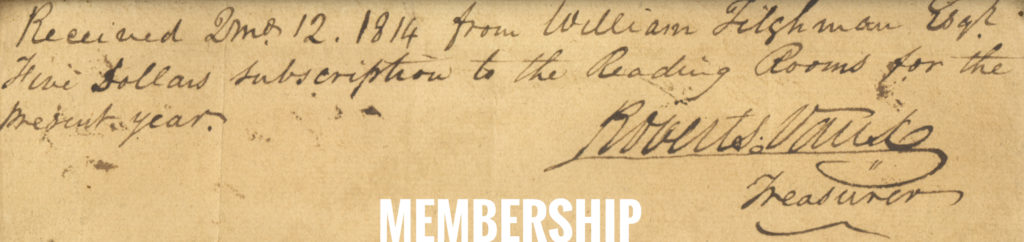 Received 2mo. 12. 1814 from William Tilghman Esqr.
Five Dollars subscription to the Reading Rooms for the
present year.
Roberts Vaux
Treasurer
MEMBERSHIP